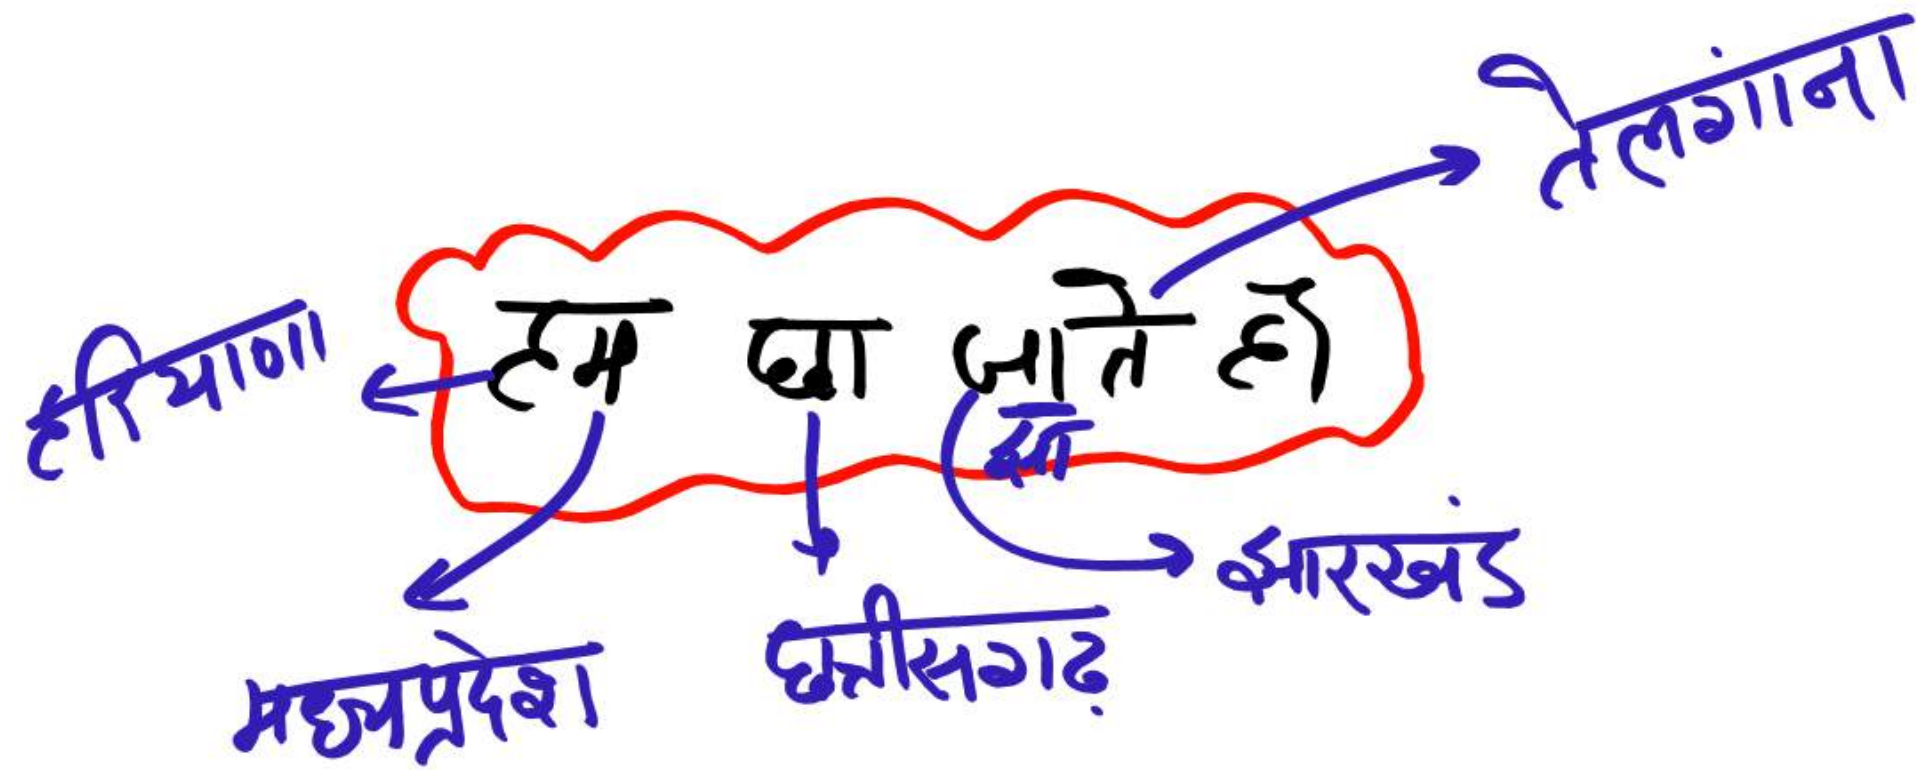 तेलगांना
हम छा जाते हो
हरियाणा
झा
झारखंड
मध्यप्रदेश
छत्तीसगढ़